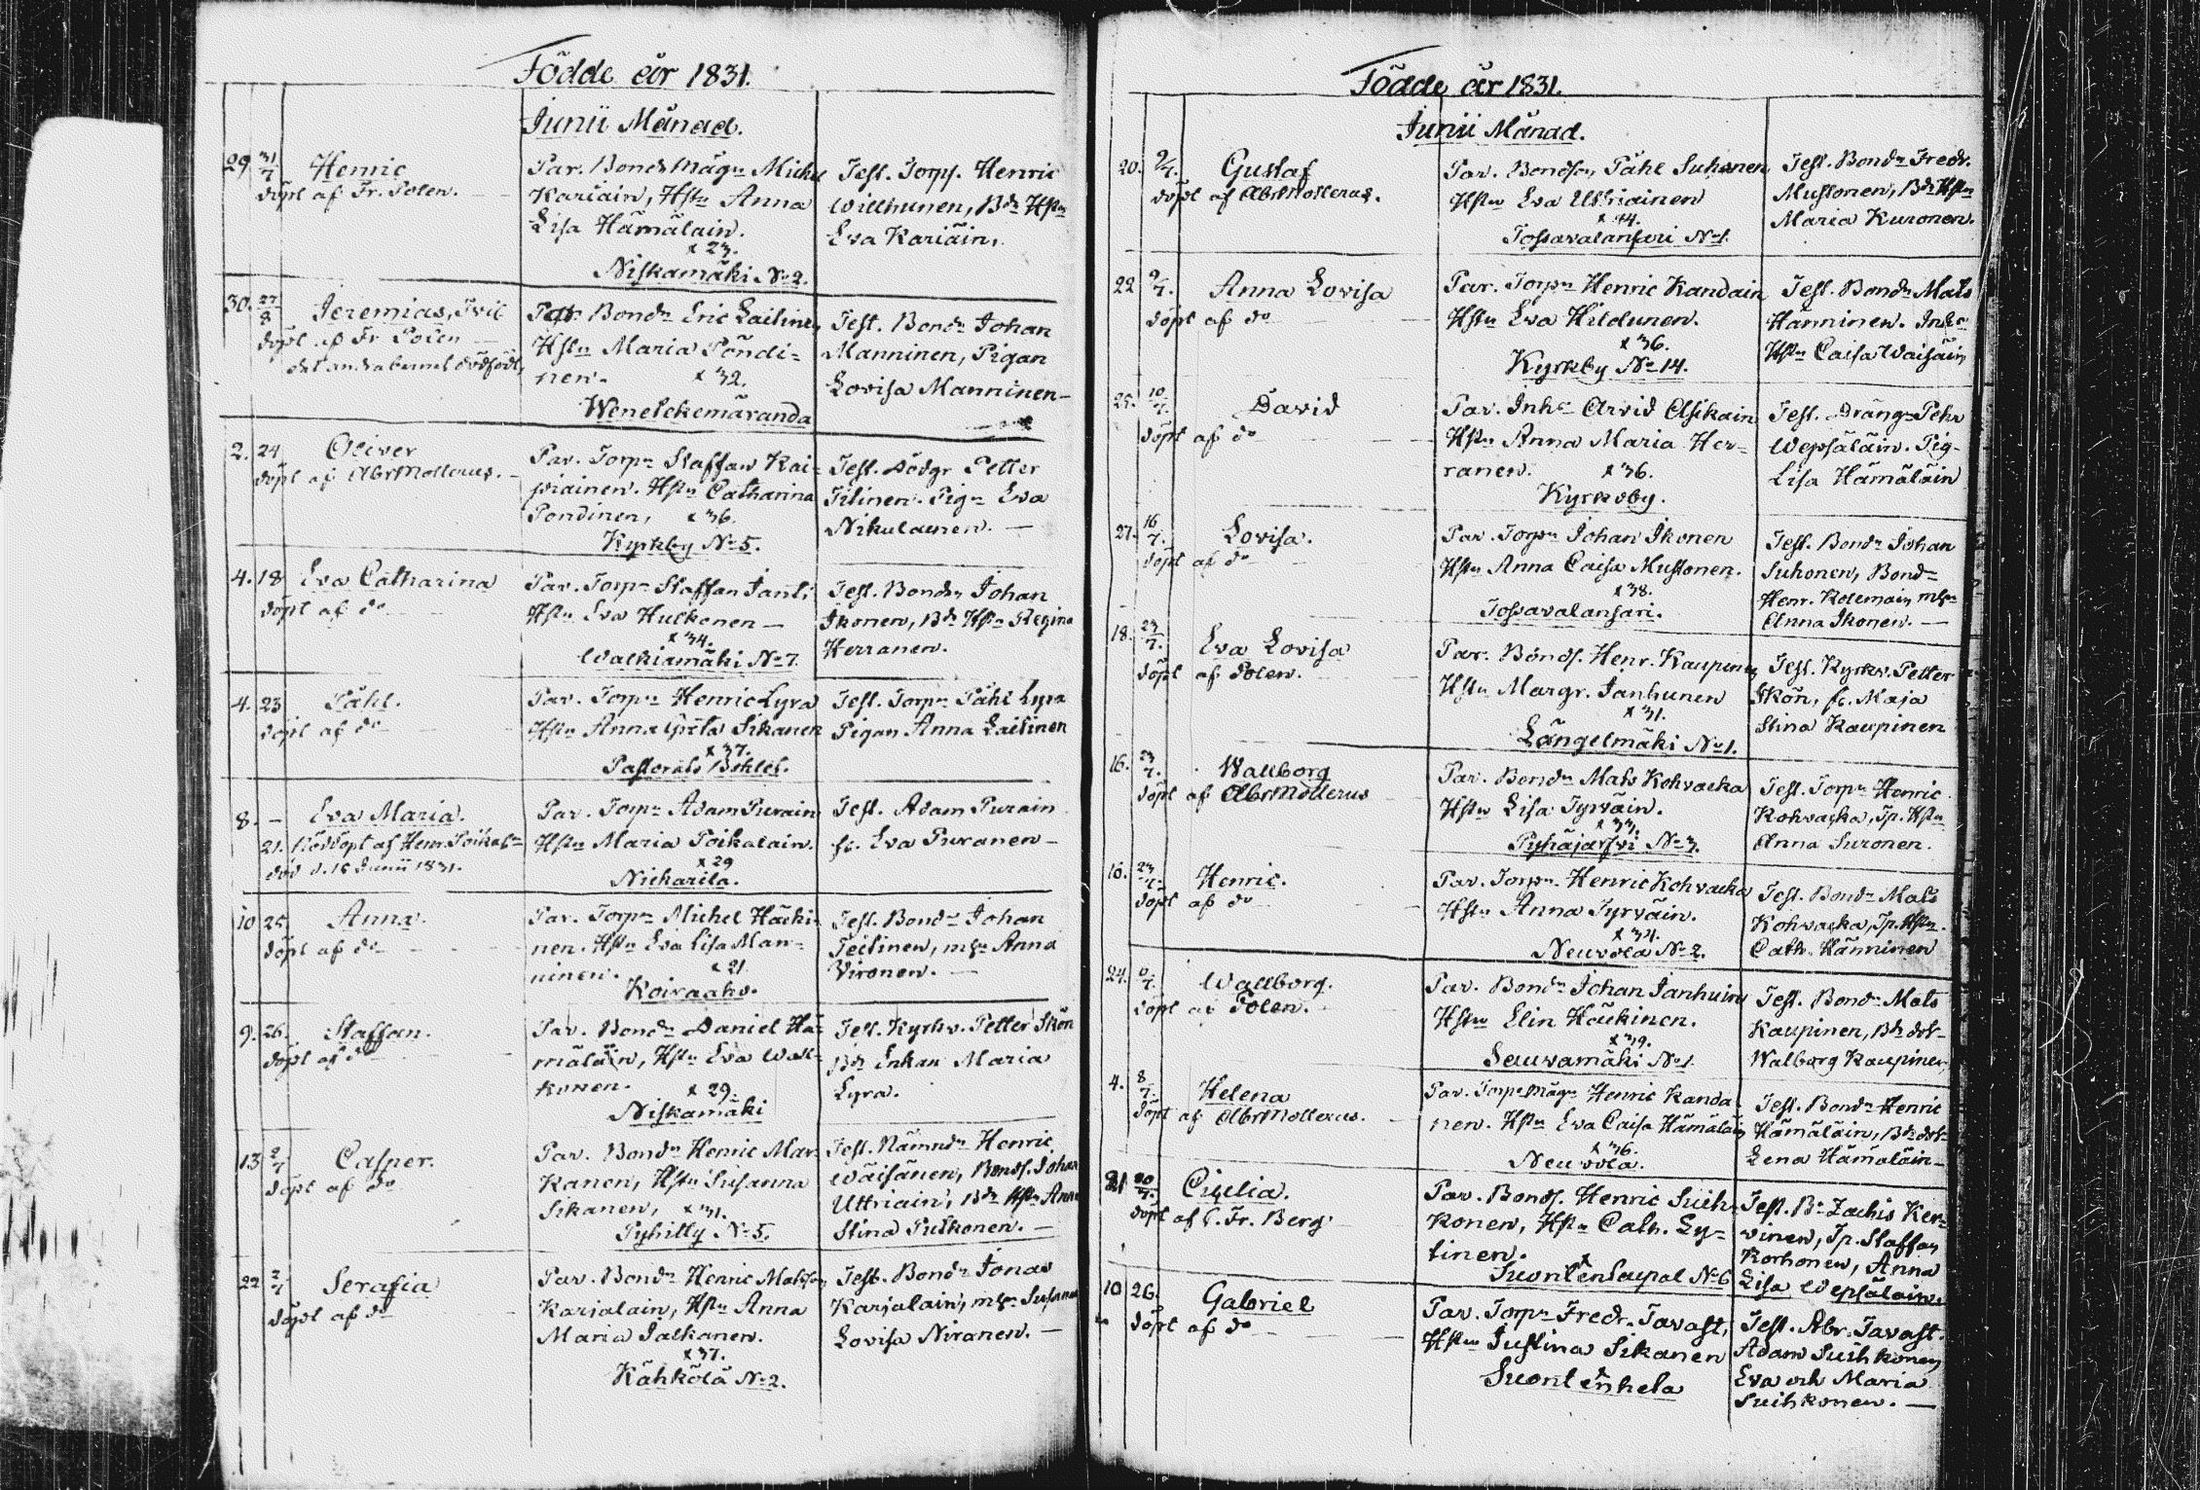 Födde år 1831.
Junii Månad.
29 31/7 Henric
döpt af Fr. Polen.
Par. Bonds Mågn Michel
Kariain, Hstn Anna
Lisa Hämäläin.
x 23.
Niskamäki No 2.
Test. Torp. Henric
Willhunen, Bdr Hstn
Eva Kariäin,
30. 27/8 Jeremias,
döpt af Fr Polen
det andra barnet dödfödt,
Par. Bondn Eric Laitinen,
Hstn Maria Pöndi=
nen. x 32.
Wenetekemäranda
Test. Bondn Johan
Manninen, Pigan
Lovisa Manninen —
2. 24 Oliver
döpt af AbrMollerus. —
Par. Torpn Staffan Kai=
piainen. Hstn Catharina
Pöndinen, x 36.
Kyrkby No 5.
Test. Dödgr Petter
Tilinen. Pign Eva
Nikulainen. —
4. 18 Eva Catharina
döpt af do
Par. Torpn Staffan Janti
Hstn Eva Hulkonen —
x 34.
Walkiamäki No 7.
Test. Bondn Johan
Ikonen, Bdr Hstn Regina
Herranen.
4. 23 Påhl.
döpt af do
Par. Torpn Henric Lyra
Hstn Anna Greta Sikanen
x 37.
Pastorats Bohlet.
Test. Torpn Påhl Lyra
Pigan Anna Laitinen
8. — Eva Maria.
21. Nöddöpt af Henr. Poikaln
död d. 15 Junii 1831.
Par. Torpn Adam Purain
Hstn Maria Poikalain.
x 29
Nickarila.
Test. Adam Purain
fr. Eva Puranen —
10 25 Anna.
döpt af do
Par. Torpn Michel Häcki=
nen. Hstn Eva Lisa Man=
ninen. x 21.
Koiraaho.
Test. Bondn Johan
Teitinen, mhn Anna
Vironen. —
9. 26. Staffan.
döpt af do
Par. Bondn Daniel Hä=
mäläin, Hstn Eva Wal=
konen. x 29.
Niskamäki
Test. Kyrkv. Petter Skön
Bdr Enkan Maria
Lyra.
13 2/7 Casper.
döpt af do
Par. Bondn Henric Mar=
kanen, Hstn Susanna
Sikanen, x 31.
Pyhilty No 5.
Test. Nämndn Henric
Wäisänen, Bonds. Johan
Uttriain, Bdr Hstn Anna
Stina Pulkonen. —
22 2/7 Serafia
döpt af do
Par. Bondn Henric Matsson
Karjalain, Hstn Anna
Maria Jalkanen.
x 37.
Kähkölä No 2.
Test. Bondn Jonas
Karjalain, mhn Susanna
Lovisa Niranen. —
Födde år 1831.
Junii Månad.
20. 9/7. Gustaf
döpt af AbrMollerus.
Par. Bondson Påhl Suhonen
Hstn Eva Uttriainen
x 44.
Tossavalansari No 1.
Test. Bondn Fredr.
Mustonen, Bdr Hstn
Maria Kuronen.
22 9/7. Anna Lovisa
döpt af do
Par. Torpn Henric Kandain
Hstn Eva Hildunen.
x 36.
Kyrkby No 14.
Test. Bondn Mats
Hänninen. Inhs
Hstn Caisa Waisäin
25. 10/7. David
döpt af do
Par. Inhs Arvid Asikain
Hstn Anna Maria Her=
ranen. x 36.
Kyrkoby.
Test. Drängn Pehr
Wepsäläin. Pig.
Lisa Hämäläin
27. 16/7. Lovisa.
döpt af do
Par. Torpn Johan Ikonen
Hstn Anna Caisa Mustonen.
x 38.
Tossavalansari.
Test. Bondn Johan
Suhonen, Bond=
Henr. Kolemain mhn
Anna Ikonen. —
18. 23/7. Eva Lovisa
döpt af Polen.
Par. Bonds. Henr. Kaupinen
Hstn Margr. Janhunen
x 31.
Längelmäki No 1.
Test. Kyrkv. Petter
Skön, fr. Maja
Stina Kaupinen
16. 23/7. Wallborg
döpt af AbrMollerus
Par. Bondn Mats Kohvacka
Hstn Lisa Tyrväin.
x 33.
Pyhäjärfvi No 3.
Test. Torpn Henric
Kohvacka, Tp. Hstn
Anna Suronen.
10. 23/7. Henric.
döpt af do
Par. Torpn. Henric Kohvacka
Hstn Anna Tyrväin.
x 34.
Neuvola No 2.
Test. Bondn Mats
Kohvacka, Tp. Hstn.
Cath. Hänninen
24. 6/7. Wallborg.
döpt af Polen.
Par. Bondn Johan Janhuinen
Hstn Elin Häckinen.
x 39.
Seuvamäki No 1.
Test. Bondn Mats
Kaupinen, Bdr dotr
Walborg Kaupinen,
4. 8/7. Helena
döpt af AbrMollerus.
Par. Torps Mågn Henric Kanda
nen. Hstn Eva Caisa Hämäläin
x 36.
Neuvola.
Test. Bondn Henric
Hämäläin, Bdr dotr
Lena Hämäläin —
21 20/7. Cicilia.
döpt af C. Fr. Berg
Par. Bonds. Henric Suih=
konen, Hstn Cath. Ly=
tinen. x
Suontensalpal No 6
Test. Bn Zachis Ker=
vinen, Tp. Staffan
Korhonen, Anna
Lisa Wepsäläin.
10 26. Gabriel
döpt af do
Par. Torpn Fredr. Tavast,
Hstn Justina Sikanen
x
Suontenhela
Test. Abr. Tavast.
Adam Suihkonen,
Eva och Maria
Suihkonen. —